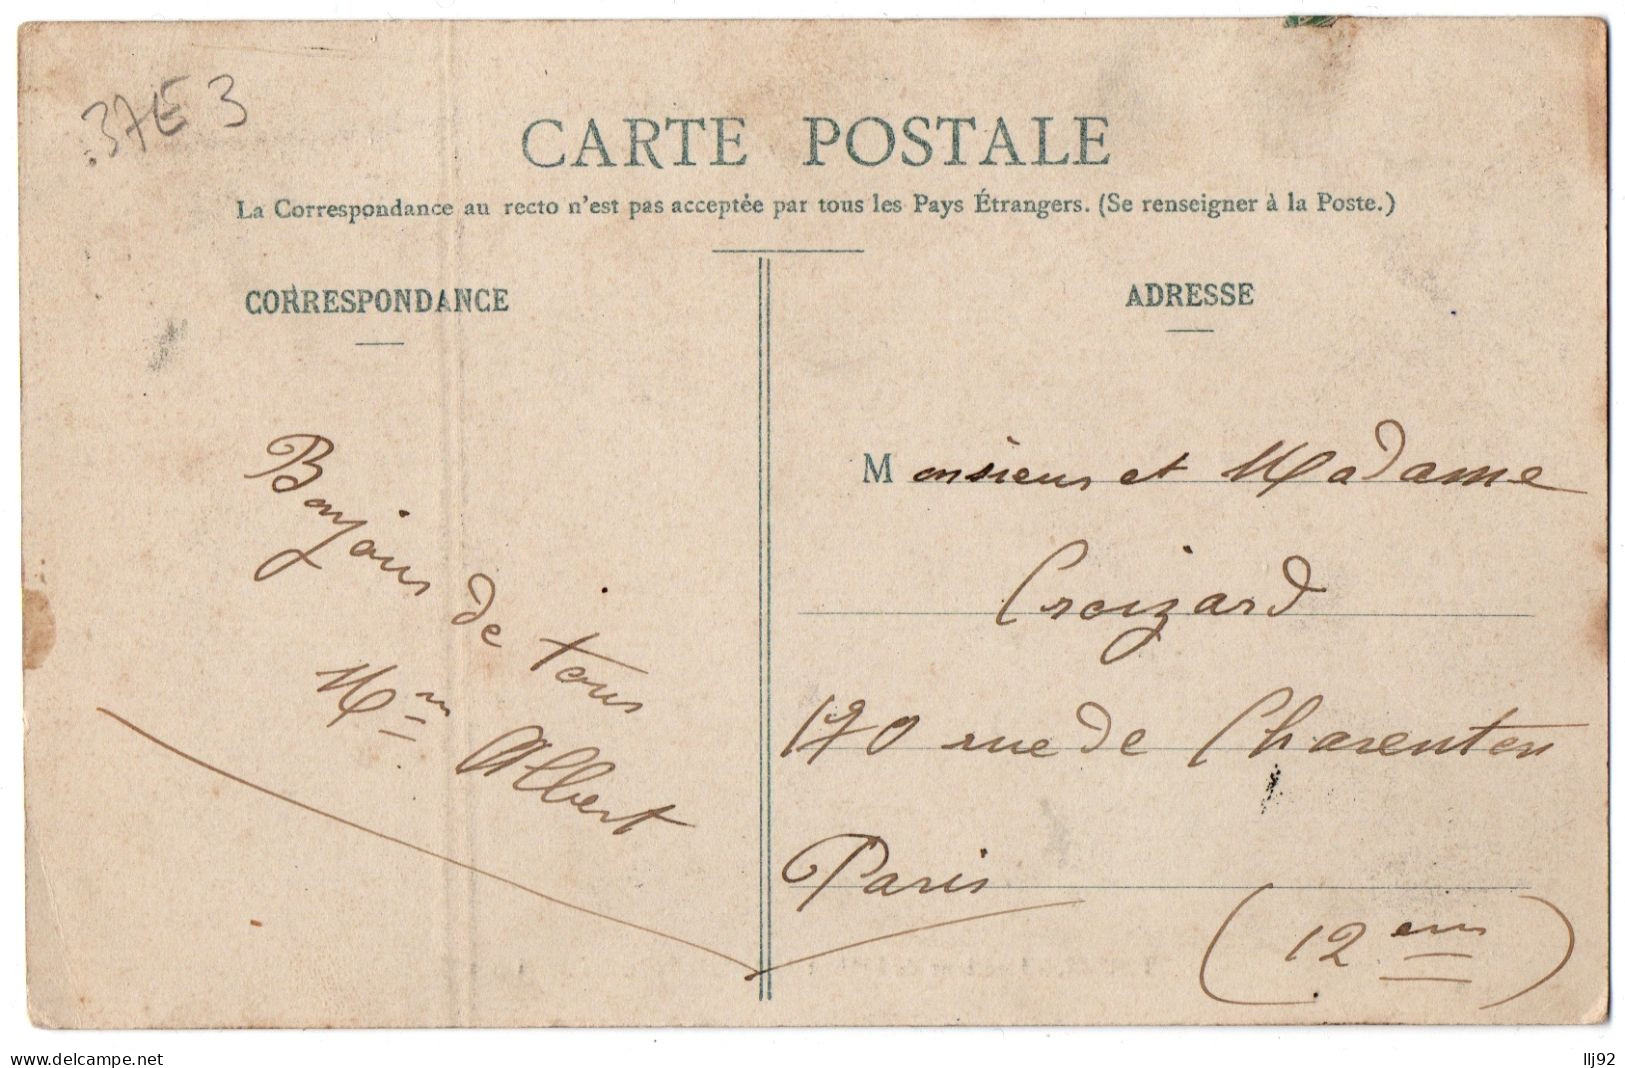 37E3
CARTE POSTALE
La Correspondance au recto n'est pas acceptée par tous les Pays Étrangers. (Se renseigner à la Poste.)
CORRESPONDANCE
Bonjour de tous
Mme Albert
ADRESSE
Monsieur et Madame
Croizard
170 rue de Charenton
Paris
(12eme)
delcampe.net
llj92